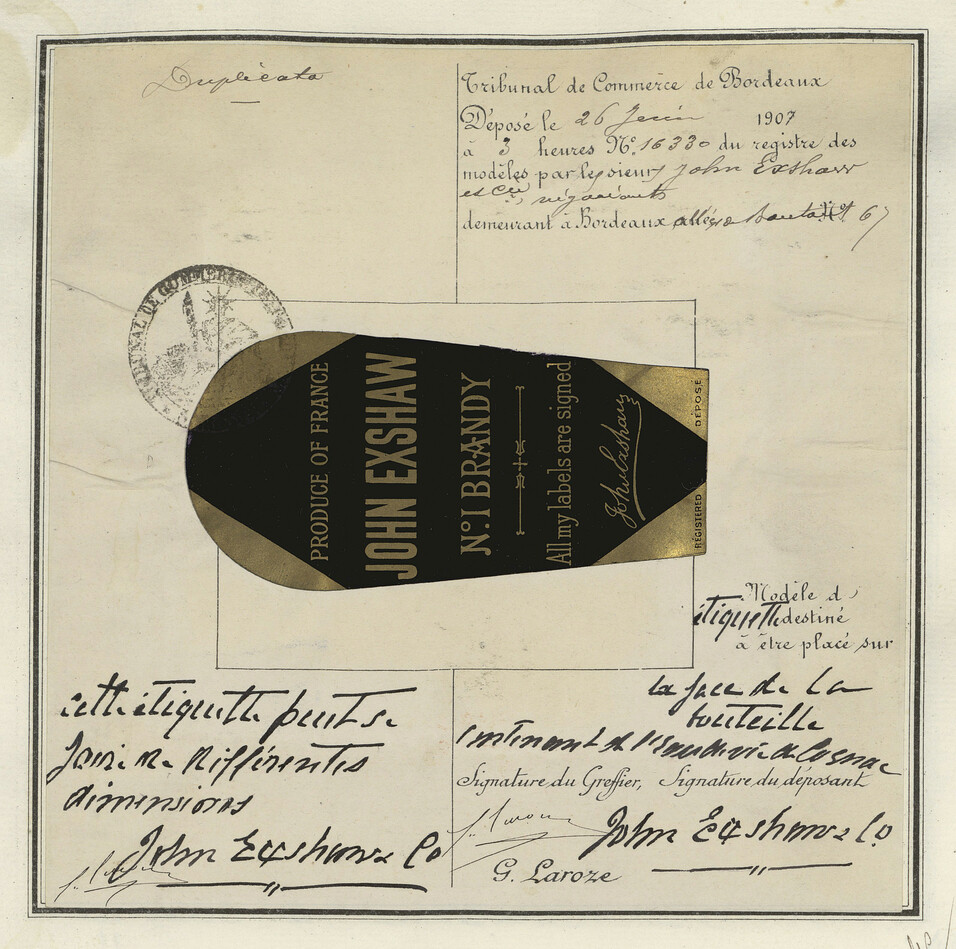 Duplicata
Tribunal de Commerce de Bordeaux
Déposé le 26 Juin 1907
à 3 heures N° 16330 du registre des
modèles par les sieurs John Exshaw
et Cie, négociants
demeurant à Bordeaux allées Boutaut 67
TRIBUNAL DE COMMERCE
PRODUCE OF FRANCE
JOHN EXSHAW
No. 1 BRANDY
All my labels are signed
John Exshaw
REGISTERED DÉPOSÉ
Modèle d'
étiquette destiné
à être placé sur
la face de la
bouteille
contenant de l'Eau de vie de Cognac
cette étiquette peut se
faire de différentes
dimensions
John Exshaw & Co
Signature du Greffier, Signature du déposant
John Exshaw & Co
G. Laroze